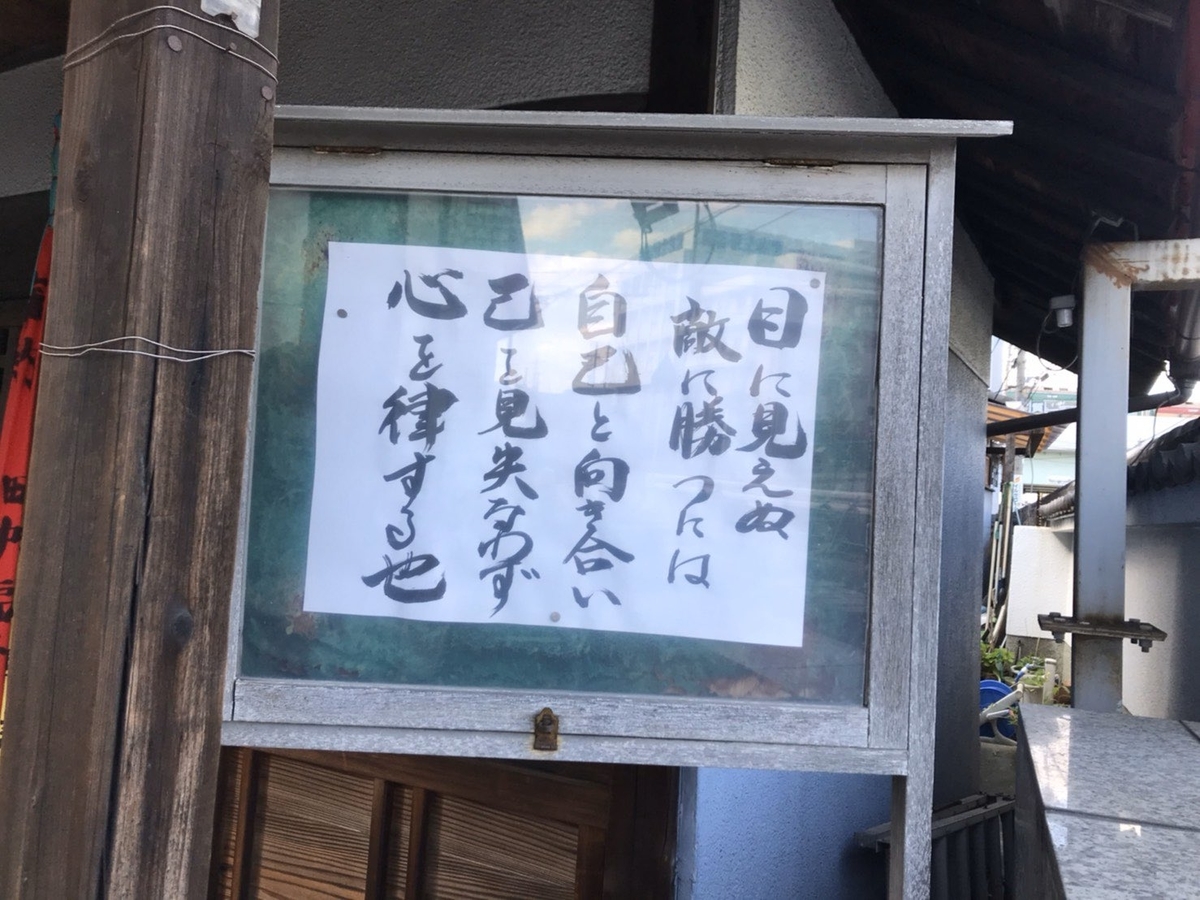 目に見えぬ
敵に勝つには
自己と向き合い
己を見失なわず
心を律する也